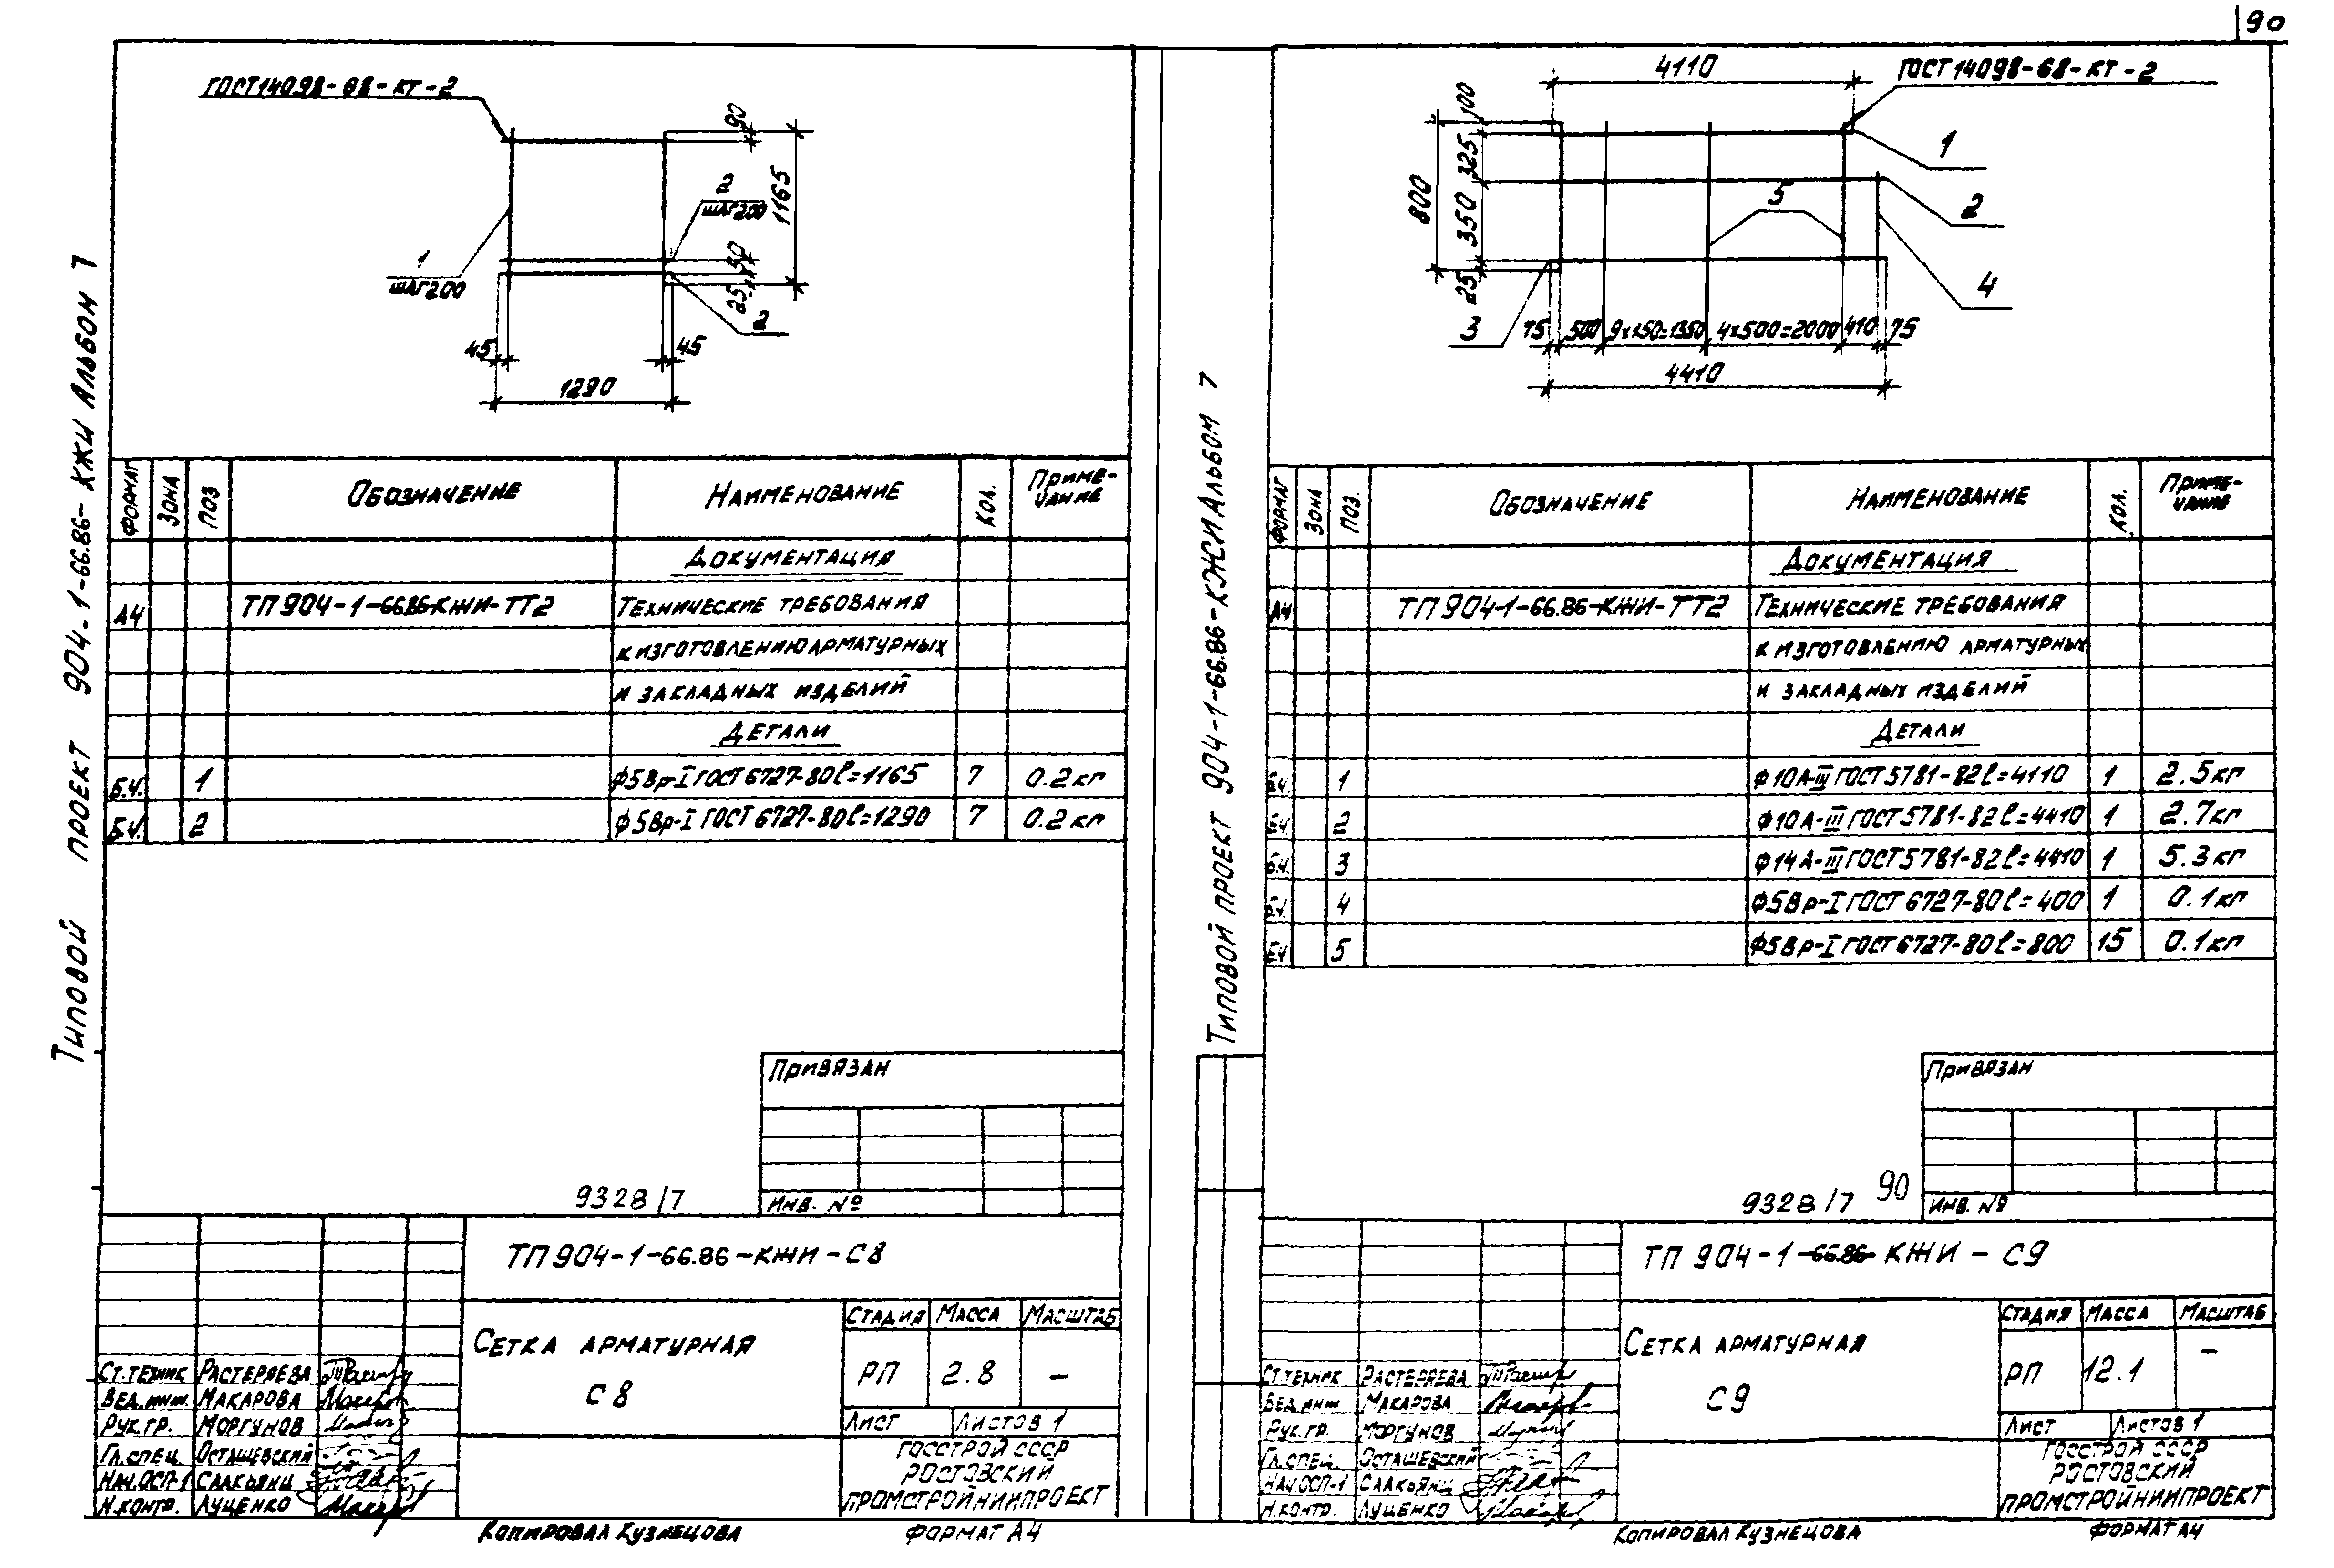 90
ГОСТ 14098-68-КТ-2
90
1165
2
ШАГ 200
1
ШАГ 200
50
25
2
45
45
1290
Типовой проект 904-1-66.86-КЖИ Альбом 7
ФОРМАТ ЗОНА ПОЗ Обозначение Наименование Кол. Приме-
чание
Документация
А4 ТП 904-1-66.86-КЖИ-ТТ2 Технические требования
к изготовлению арматурных
и закладных изделий
Детали
Б.Ч. 1 Ф5Вр-I ГОСТ 6727-80 l=1165 7 0.2 кг
Б.Ч. 2 Ф5Вр-I ГОСТ 6727-80 l=1290 7 0.2 кг
Привязан
9328/7
Инв. №
ТП 904-1-66.86-КЖИ-С8
Сетка арматурная
С8
Стадия Масса Масштаб
РП 2.8 –
Лист Листов 1
Госстрой СССР
Ростовский
Промстройниипроект
Ст.техник Растеряева
Вед.инж. Макарова
Рук.гр. Моргунов
Гл.спец. Осташевский
Нач.ОСП-1 Саакьянц
Н.контр. Луценко
Копировал Кузнецова Формат А4
4110
ГОСТ 14098-68-КТ-2
100
325
800
350
25
1
2
5
4
3
75 500 9×150=1350 4×500=2000 410 75
4410
Типовой проект 904-1-66.86-КЖИ Альбом 7
ФОРМАТ ЗОНА ПОЗ. Обозначение Наименование Кол. Приме-
чание
Документация
А4 ТП 904-1-66.86-КЖИ-ТТ2 Технические требования
к изготовлению арматурных
и закладных изделий
Детали
Б.Ч. 1 Ф10А-III ГОСТ 5781-82 l=4110 1 2.5 кг
Б.Ч. 2 Ф10А-III ГОСТ 5781-82 l=4410 1 2.7 кг
Б.Ч. 3 Ф14А-III ГОСТ 5781-82 l=4410 1 5.3 кг
Б.Ч. 4 Ф5Вр-I ГОСТ 6727-80 l=400 1 0.1 кг
Б.Ч. 5 Ф5Вр-I ГОСТ 6727-80 l=800 15 0.1 кг
Привязан
9328/7 90
Инв. №
ТП 904-1-66.86-КЖИ-С9
Сетка арматурная
С9
Стадия Масса Масштаб
РП 12.1 –
Лист Листов 1
Госстрой СССР
Ростовский
Промстройниипроект
Ст.техник Растеряева
Вед.инж. Макарова
Рук.гр. Моргунов
Гл.спец. Осташевский
Нач.ОСП-1 Саакьянц
Н.контр. Луценко
Копировал Кузнецова Формат А4